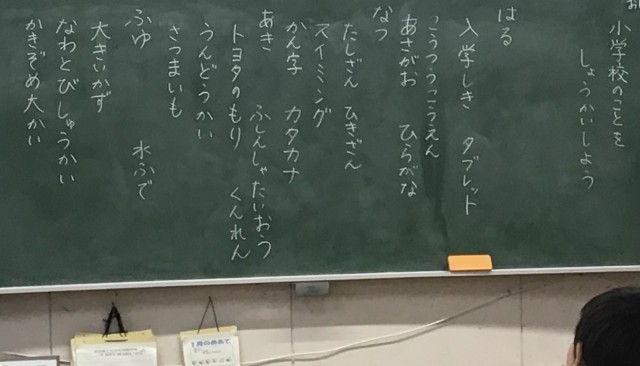 小学校のことを
しょうかいしよう
はる
入学しき タブレット
こうつうこうえん
あさがお ひらがな
なつ
たしざん ひきざん
スイミング
かん字 カタカナ
あき ふしんしゃたいおう
トヨタのもり くんれん
うんどうかい
さつまいも
ふゆ 水ふで
大きいかず
なわとびしゅうかい
かきぞめ大かい
1月のめあて